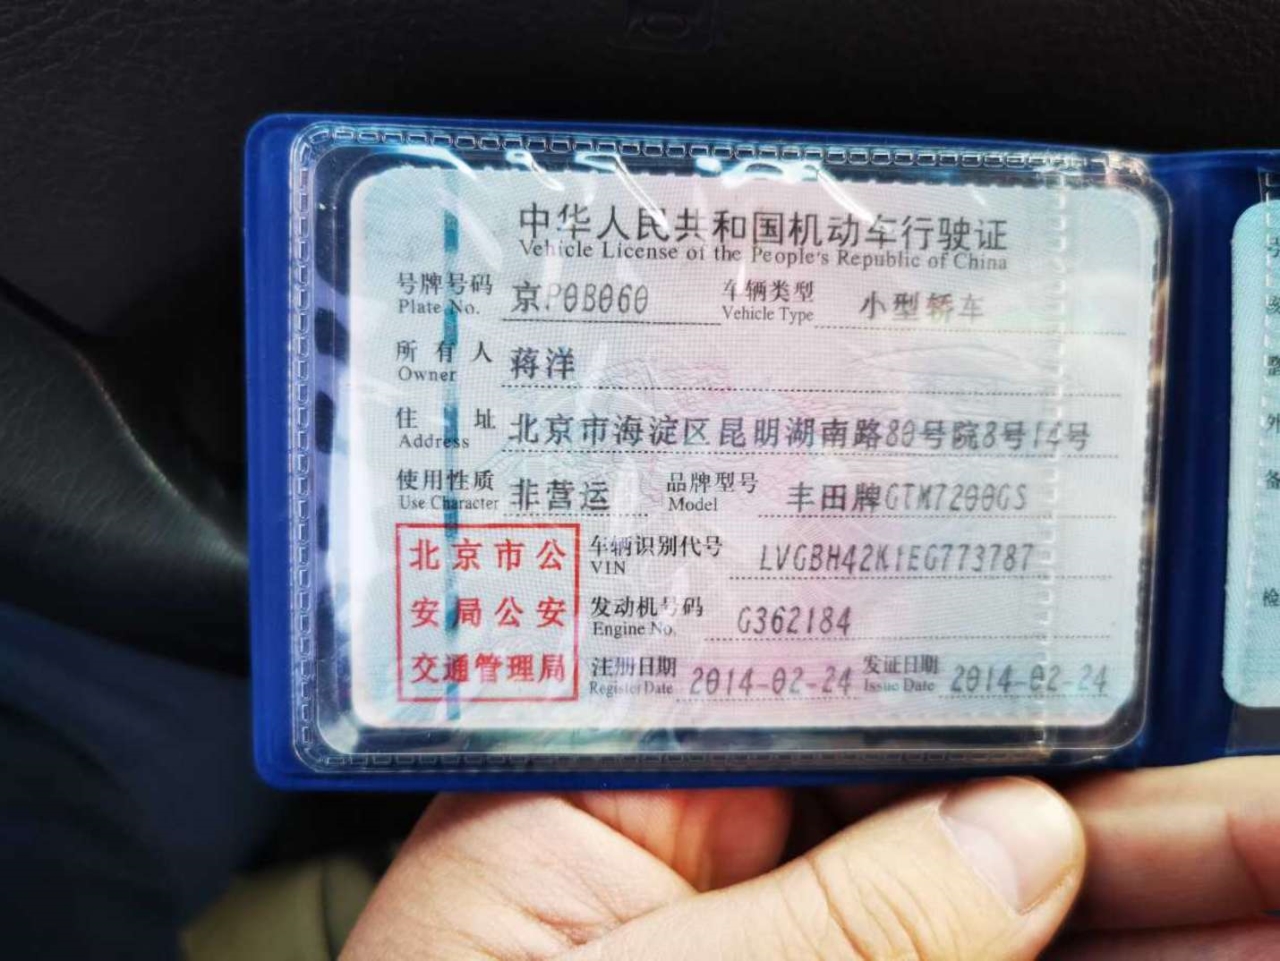 中华人民共和国机动车行驶证
Vehicle License of the People's Republic of China
号牌号码 京P0B060 车辆类型 小型轿车
Plate No. Vehicle Type
所有人 蒋洋
Owner
住址 北京市海淀区昆明湖南路80号院8号14号
Address
使用性质 非营运 品牌型号 丰田牌GTM7200GS
Use Character Model
北京市公
安局公安
交通管理局
车辆识别代号 LVGBH42K1EG773787
VIN
发动机号码 G362184
Engine No.
注册日期 2014-02-24 发证日期 2014-02-24
Register Date Issue Date